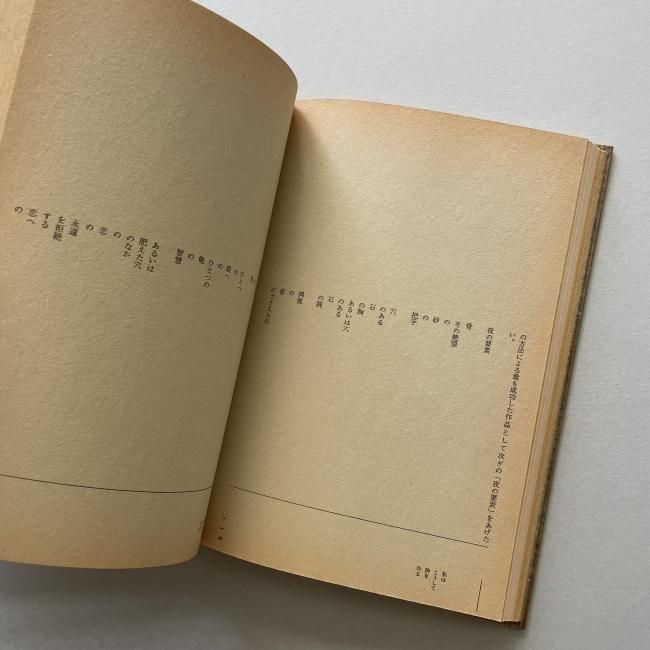 の方法による最も成功した作品として次ぎの「夜の要素」をあげた
い。
夜の要素
骨
その絶望
の
砂
の
把手
穴
のある
石
の胸
あるいは穴
のある
石
の腕
偶像
の
夜
にささえられ
私は
こうして
詩を
作る
ひとつ
の
へ
の
ひとつの
亀
の
智慧
あるいは
肥えた穴
のなか
の
恋
の
永遠
を拒絶
する
恋へ
の